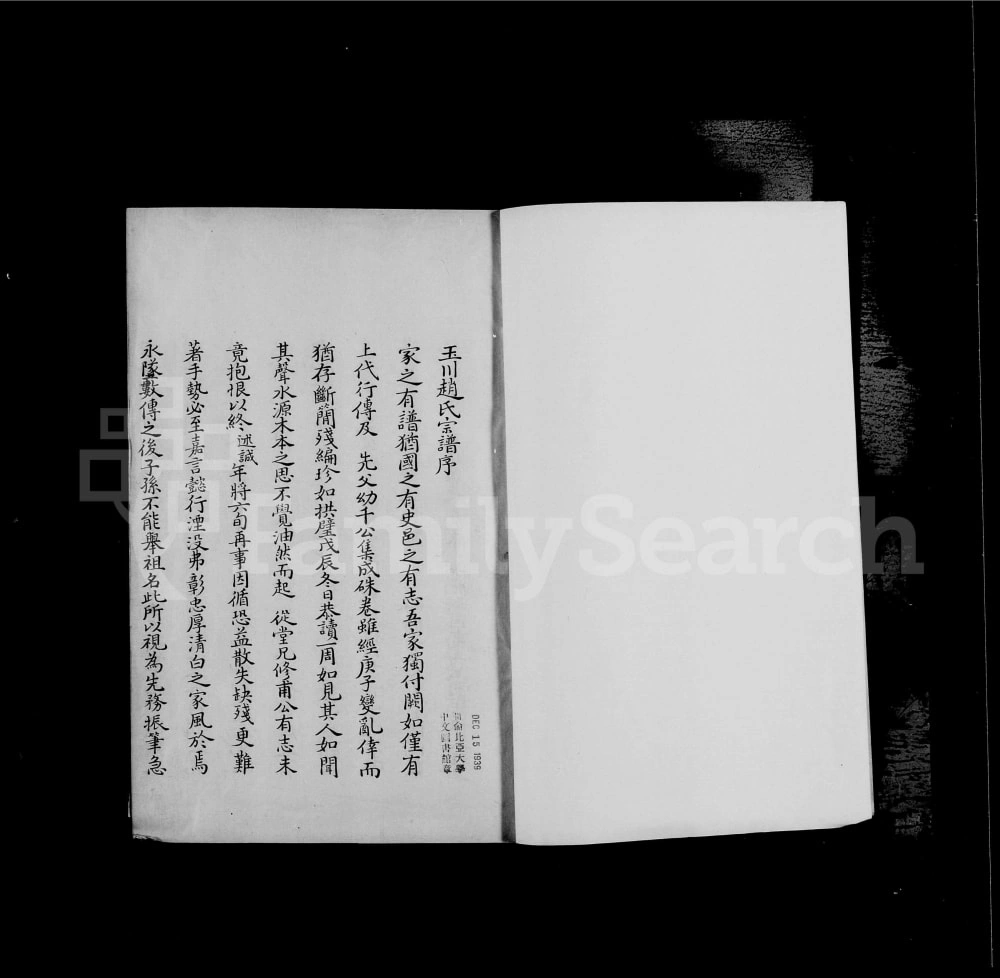 玉川趙氏宗譜序
家之有譜猶國之有史邑之有志吾家獨付闕如僅有
上代行傳及 先父幼千公集成硃卷雖經庚子變亂倖而
猶存斷簡殘編珍如拱璧戊辰冬日恭讀一周如見其人如聞
其聲水源木本之思不覺油然而起 從堂兄修甫公有志未
竟抱恨以終述誠年將六旬再事因循恐益散失缺殘更難
著手勢必至嘉言懿行湮没弗彰忠厚清白之家風於焉
永墜數傳之後子孫不能舉祖名此所以視為先務振筆急
DEC 15 1939
哥倫比亞大學
中文圖書館章
FamilySearch